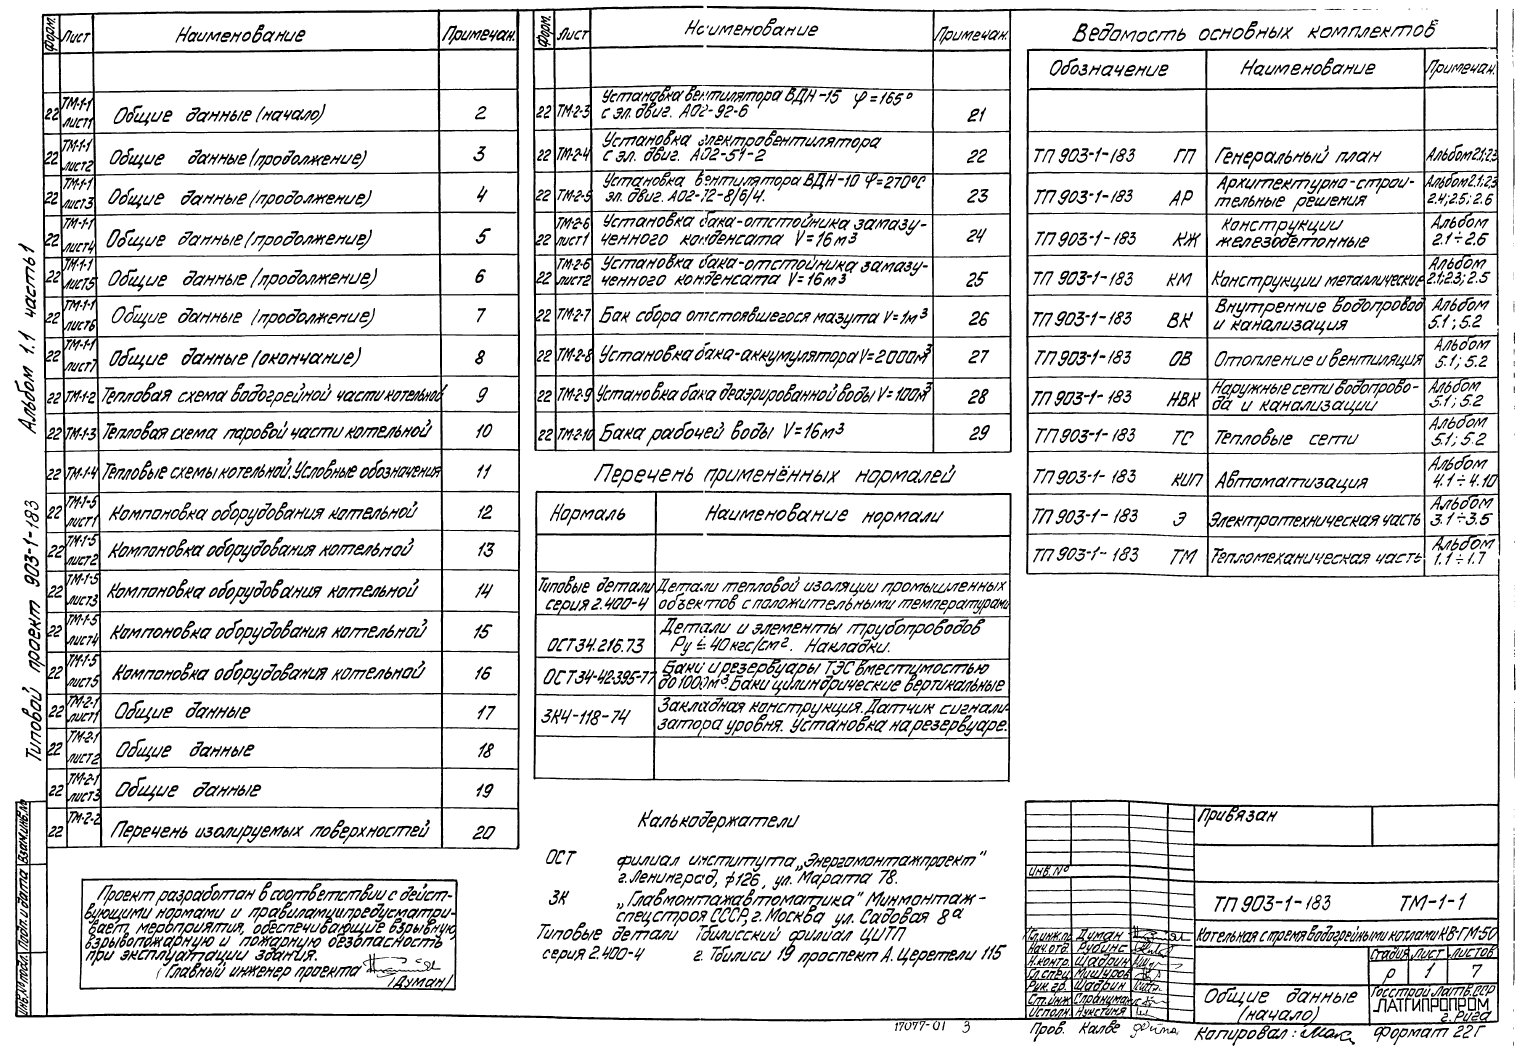 Альбом 1.1 часть 1
Типовой проект 903-1-183
Взам.инв.№
Подп. и дата
Инв.№подл.
Форм. Лист Наименование Примечан.
22 ТМ-1-1 лист1 Общие данные (начало) 2
22 ТМ-1-1 лист2 Общие данные (продолжение) 3
22 ТМ-1-1 лист3 Общие данные (продолжение) 4
22 ТМ-1-1 лист4 Общие данные (продолжение) 5
22 ТМ-1-1 лист5 Общие данные (продолжение) 6
22 ТМ-1-1 лист6 Общие данные (продолжение) 7
22 ТМ-1-1 лист7 Общие данные (окончание) 8
22 ТМ-1-2 Тепловая схема водогрейной части котельной 9
22 ТМ-1-3 Тепловая схема паровой части котельной 10
22 ТМ-1-4 Тепловые схемы котельной. Условные обозначения 11
22 ТМ-1-5 лист1 Компоновка оборудования котельной 12
22 ТМ-1-5 лист2 Компоновка оборудования котельной 13
22 ТМ-1-5 лист3 Компоновка оборудования котельной 14
22 ТМ-1-5 лист4 Компоновка оборудования котельной 15
22 ТМ-1-5 лист5 Компоновка оборудования котельной 16
22 ТМ-2-1 лист1 Общие данные 17
22 ТМ-2-1 лист2 Общие данные 18
22 ТМ-2-1 лист3 Общие данные 19
22 ТМ-2-2 Перечень изолируемых поверхностей 20
Проект разработан в соответствии с дейст-
вующими нормами и правилами и предусматри-
вает мероприятия, обеспечивающие взрывную,
взрывопожарную и пожарную безопасность
при эксплуатации здания.
Главный инженер проекта
/Думан/
Форм. Лист Наименование Примечан.
22 ТМ-2-3 Установка вентилятора ВДН-15 φ=165°
с эл. двиг. А02-92-6 21
22 ТМ-2-4 Установка электровентилятора
с эл. двиг. А02-51-2 22
22 ТМ-2-5 Установка вентилятора ВДН-10 φ=270°С
эл. двиг. А02-72-8/6/4. 23
22 ТМ-2-6 лист1 Установка бака-отстойника замазу-
ченного конденсата V=16м³ 24
22 ТМ-2-6 лист2 Установка бака-отстойника замазу-
ченного конденсата V=16м³ 25
22 ТМ-2-7 Бак сбора отстоявшегося мазута V=1м³ 26
22 ТМ-2-8 Установка бака-аккумулятора V=2000м³ 27
22 ТМ-2-9 Установка бака деаэрированной воды V=100м³ 28
22 ТМ-2-10 Бака рабочей воды V=16м³ 29
Перечень применённых нормалей
Нормаль Наименование нормали
Типовые детали серия 2.400-4 Детали тепловой изоляции промышленных
объектов с положительными температурами
ОСТ34.216.73 Детали и элементы трубопроводов
Ру ≤ 40кгс/см². Накладки.
ОСТ34-42.395-77 Баки и резервуары ТЭС вместимостью
до 1000м³. Баки цилиндрические вертикальные
ЗК4-118-74 Закладная конструкция. Датчик сигнали-
затора уровня. Установка на резервуаре.
Калькодержатели
ОСТ филиал института „Энергомонтажпроект"
г. Ленинград, ф126, ул. Марата 78.
ЗК „Главмонтажавтоматика" Минмонтаж-
спецстроя СССР, г. Москва ул. Садовая 8а
Типовые детали Тбилисский филиал ЦИТП
серия 2.400-4 г. Тбилиси 19 проспект А. Церетели 115
Ведомость основных комплектов
Обозначение Наименование Примечан.
ТП 903-1-183 ГП Генеральный план Альбом2.1;2.3
ТП 903-1-183 АР Архитектурно-строи-
тельные решения Альбом2.1;2.3
2.4; 2.5; 2.6
ТП 903-1-183 КЖ Конструкции
железобетонные Альбом
2.1÷2.6
ТП 903-1-183 КМ Конструкции металлические Альбом
2.1; 2.3; 2.5
ТП 903-1-183 ВК Внутренние водопровод
и канализация Альбом
5.1; 5.2
ТП 903-1-183 ОВ Отопление и вентиляция Альбом
5.1; 5.2
ТП 903-1-183 НВК Наружные сети водопрово-
да и канализации Альбом
5.1; 5.2
ТП 903-1-183 ТС Тепловые сети Альбом
5.1; 5.2
ТП 903-1-183 КИП Автоматизация Альбом
4.1÷4.10
ТП 903-1-183 Э Электротехническая часть Альбом
3.1÷3.5
ТП 903-1-183 ТМ Тепломеханическая часть Альбом
1.1÷1.7
Привязан
Инв.№
ТП 903-1-183 ТМ-1-1
Гл.инж.пр. Думан
Нач.отд. Рубинс
Н.контр. Шадрин
Гл.спец. Мишуров
Рук. гр. Шадрин
Ст.инж.
Исполн.
Пров. Калве
Котельная с тремя водогрейными котлами КВ-ГМ-50
Стадия Лист Листов
Р 1 7
Общие данные
(начало)
Госстрой Латв.ССР
ЛАТГИПРОПРОМ
г. Рига
17077-01 3
Копировал: Формат 22Г